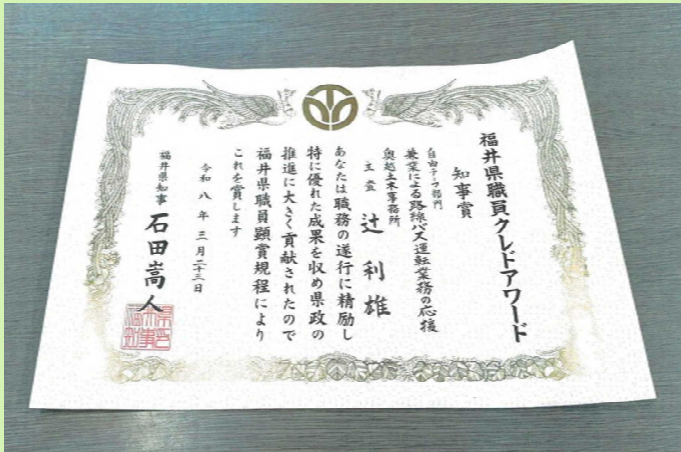 福井県職員クレドアワード
知事賞
自由テーマ部門
兼業による路線バス運転業務の応援
奥越土木事務所
主査 辻利雄
あなたは職務の遂行に精励し
特に優れた成果を収め県政の
推進に大きく貢献されたので
福井県職員顕賞規程により
これを賞します
令和八年三月二十三日
福井県知事 石田嵩人